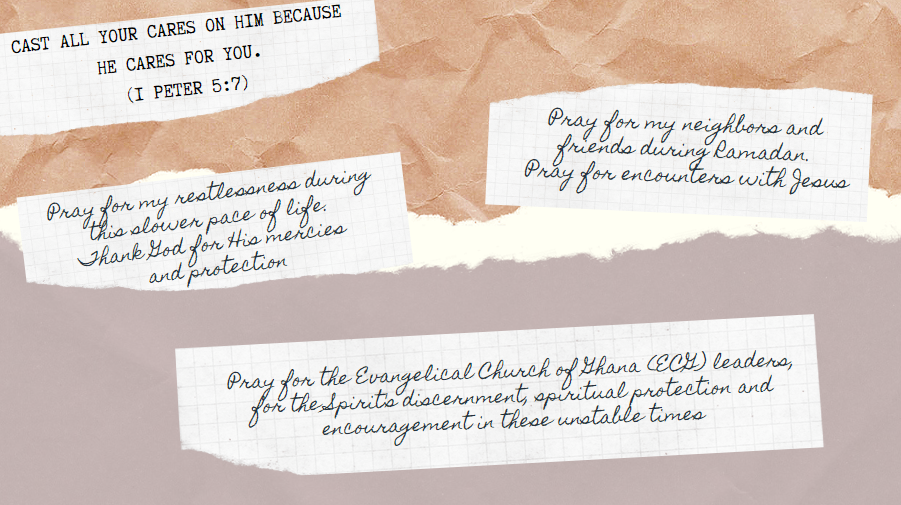 CAST ALL YOUR CARES ON HIM BECAUSE
HE CARES FOR YOU.
(I PETER 5:7)
Pray for my neighbors and
friends during Ramadan.
Pray for encounters with Jesus
Pray for my restlessness during
this slower pace of life.
Thank God for His mercies
and protection
Pray for the Evangelical Church of Ghana (ECG) leaders,
for the Spirit's discernment, spiritual protection and
encouragement in these unstable times